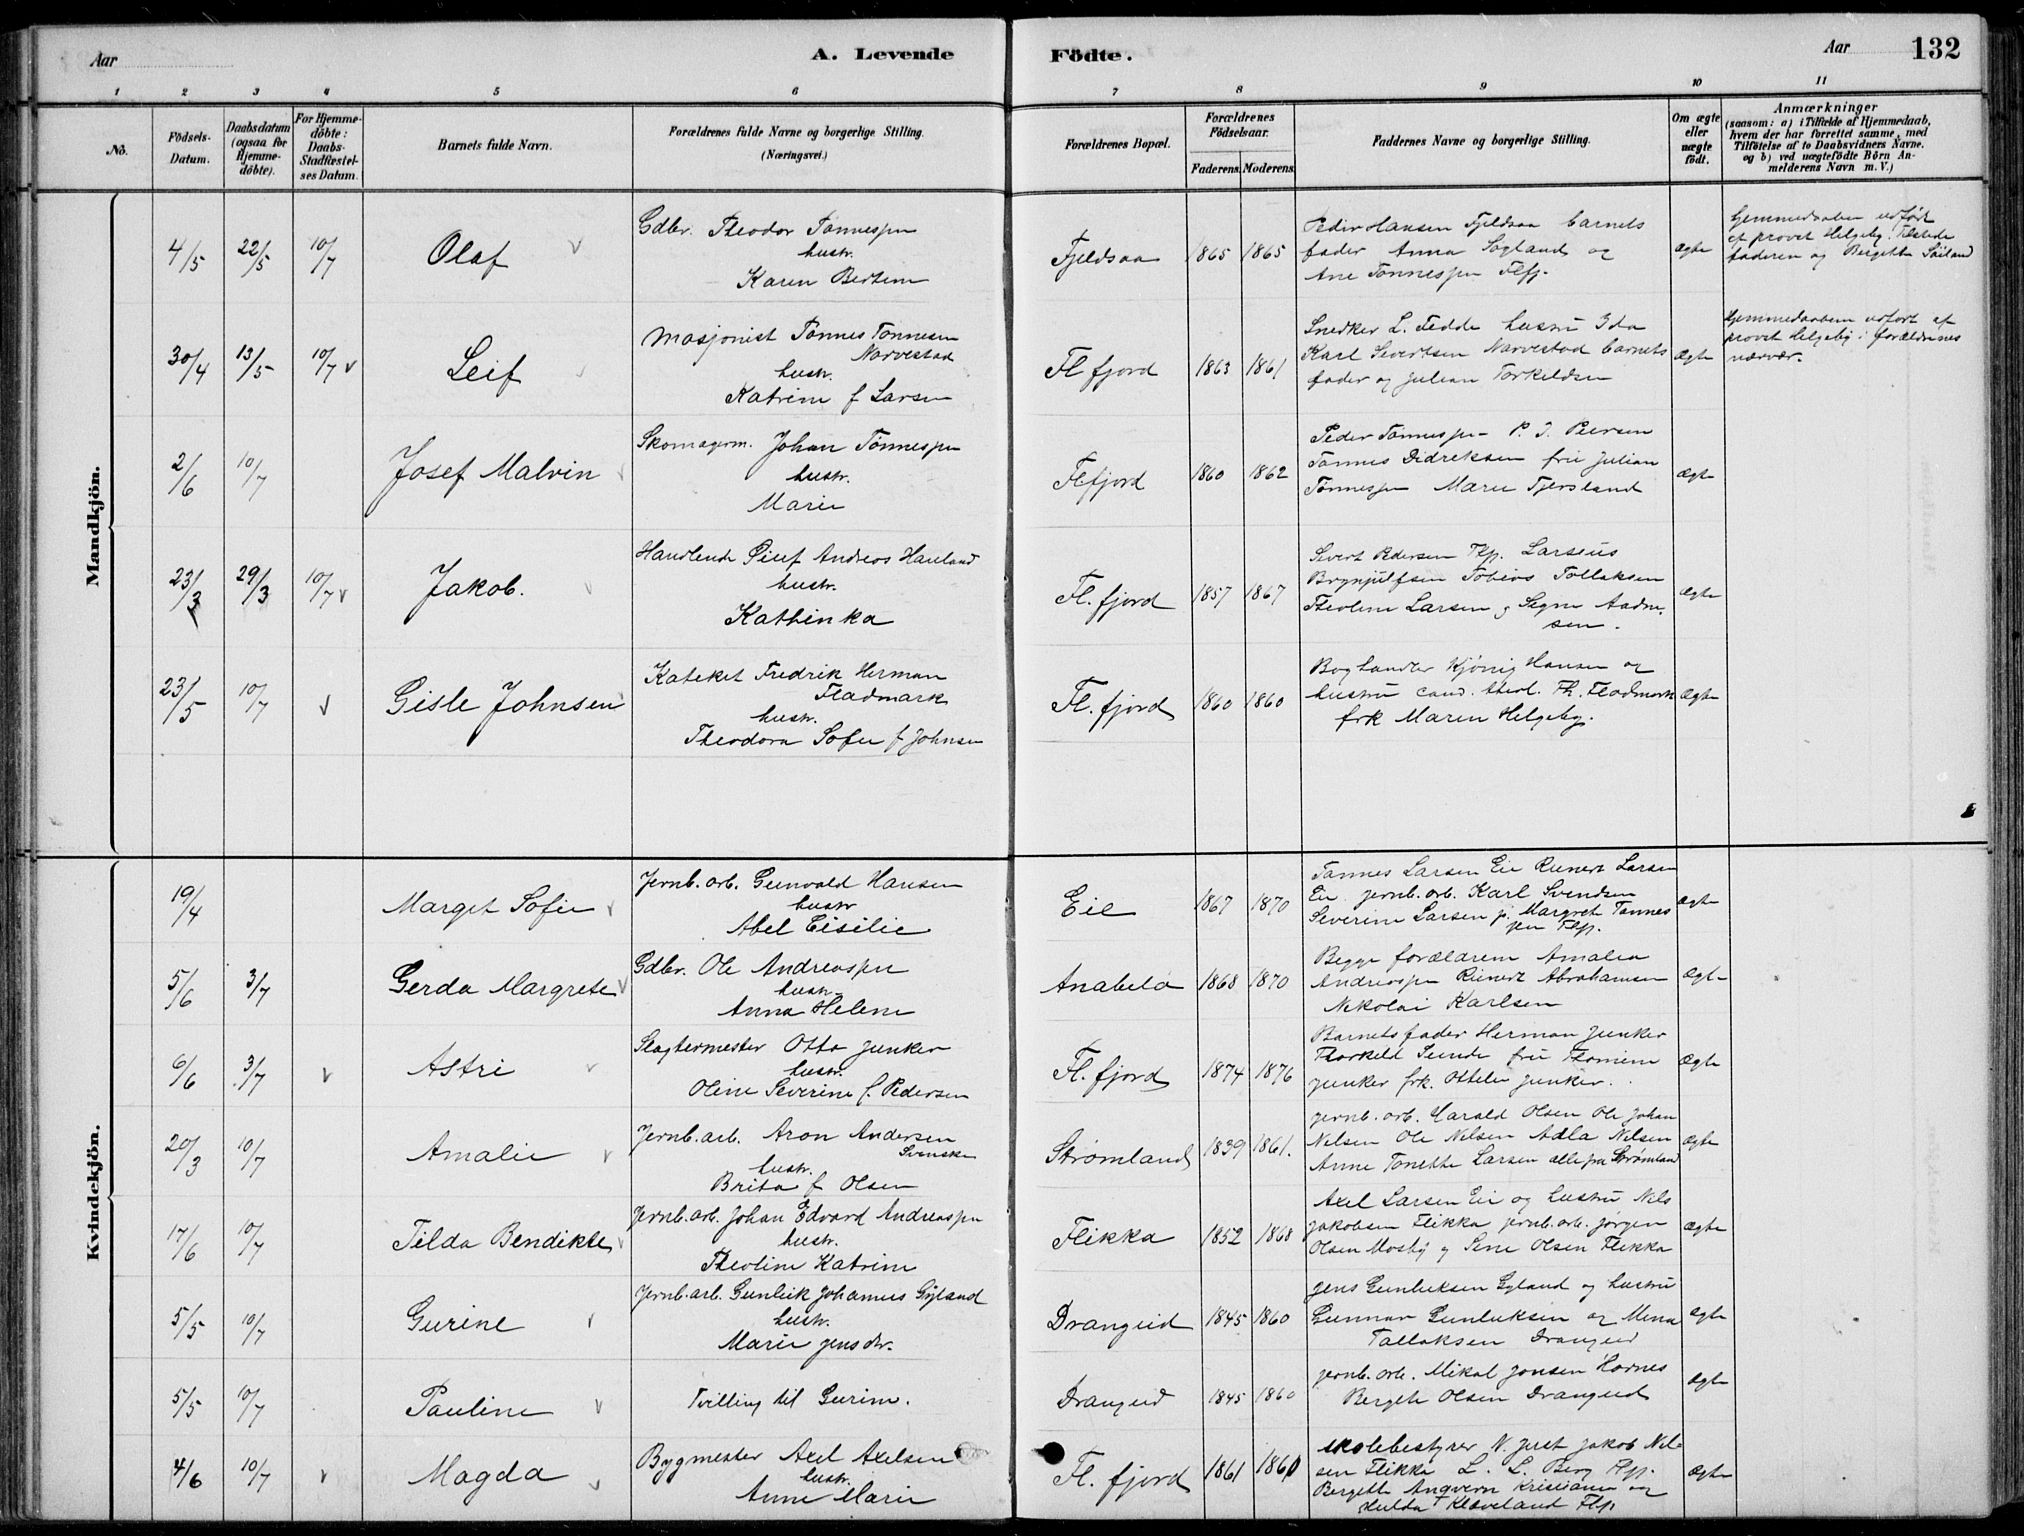 Aar
A. Levende
Födte.
Aar
132
1 2 3 4 5 6 7 8 9 10 11
No.
Födsels-
Datum.
Daabsdatum
(ogsaa for
Hjemme-
döbte).
For Hjemme-
döbte:
Daabs-
Stadfæstel-
ses Datum.
Barnets fulde Navn.
Forældrenes fulde Navne og borgerlige Stilling.
(Næringsvei.)
Forældrenes Bopæl.
Forældrenes
Födselsaar.
Faderens. Moderens.
Faddernes Navne og borgerlige Stilling.
Om ægte
eller
uægte
födt.
Anmærkninger
(saasom: a) i Tilfælde af Hjemmedaab,
hvem der har forrettet samme, med
Tilföielse af to Daabsvidners Navne.
og b) ved uægtefödte Börn An-
melderens Navn m. V.)
Mandkjön.
4/5 22/5 10/7 Olaf
Gdbr. Theodor Tønnespen
hustr.
Karen
Fjeldsaa 1865 1865
Peder Hansen Fjeldsaa barnets
fader Anna Søyland og
Ane Tønnespen Flfj.
ægte
Hjemmedaaben udført
af provst Helgeby. Tilstede
faderen og Bergette Søiland
30/4 13/5 10/7 Leif
Masjonist Tønnes Tønnesen
Narvestad
hustr.
Katrine f Larsen
Fl fjord 1863 1861
Snedker L. Fedde hustru Ida
Karl Severtsen Narvestad barnets
fader og Julian Torkeldsen
ægte
Hjemmedaaben udført af
provst Helgeby i forældrenes
nærvær.
2/6 10/7 Josef Malvin
Skomagerm. Johan Tønnespen
hustr.
Marie
Flfjord 1860 1862
Peder Tønnespen P. J. Peersen
Tønnes Didreksen fru Julian
Tønnespen Marie Fjersland
ægte
23/3 29/3 10/7 Jakob.
Handlende Andreas Haaland
hustr.
Kathinka
Fl. fjord 1857 1867
Severt Pedersen Flfj. Larsens
Brynjulfsen Tobias Tollaksen
Theoline Larsen g Segne Aadne-
sen.
ægte
23/5 10/7 Gisle Johnsen
Kateket Fredrik Herman
Fladmark
hustr.
Theodora Sofie f Johnsen
Fl. fjord 1860 1860
Boghandler Kjönig Hansen og
hustru cand. theol. Th. Flodmark
frk Maren Helgeby.
ægte
Kvindekjön.
19/4 Marget Sofie
Jernb. arb. Gunvald Hansen
hustr
Abel Cisilie
Eie 1867 1870
Tønnes Larsen Eie Reinert Larsen
Eie jernb. arb. Karl Svendsen
Severine Larsen p. Margret Tønnes
pen Flfj.
ægte
5/6 3/7 Gerda Margrete
Gdbr. Ole Andreaspen
hustr.
Anna Helene
Anabelø 1868 1870
Begge forældrene Amalia
Andreaspen Reinert Abrahamsen
Nikolai Karlsen
ægte
6/6 3/7 Astri
Slagtermester Otto Junker
hustr.
Oline Severine f. Pedersen
Fl. fjord 1874 1876
Barnets fader Herman Junker
Thorkeld Sunde fru Thomine
Junker frk. Ottelie Junker.
ægte
20/3 10/7 Amalie
Jernb. arb. Aron Andersen
Svenske
hustr.
Brita f Olsen
Strømland 1839 1861.
jernb. arb. Harald Olsen Ole Johan
Nilsen Ole Nilsen Adla Nilsen
Anne Tonette Larsen alle fra Strømland
ægte
17/6 10/7 Tilda Bendikte
Jernb. arb. Johan Edvard Andreaspen
hustr.
Theoline Katrine
Flikka 1852 1868
Axel Larsen Eie og hustru Nils
Jakobsen Flikka jernb. arb. Jørgen
Olsen Mosby g Sene Olsen Flikka
ægte
5/5 10/7 Gurine
Jernb. arb. Gunleik Johannes Gyland
hustr.
Marie Jensdtr.
Drangeid 1845 1860
Jens Gunleiksen Gyland og hustru
Gunnar Gunleiksen og Mena
Tallaksen Drangeid
ægte
5/5 10/7 Pauline
Tvilling til Gurine.
Drangeid 1845 1860
jernb. arb. Mikal Jonsen Hornes
Bergete Olsen Drangeid
ægte
4/6 10/7 Magda
Bygmester Axel Axelsen
hustr.
Anne Marie
Fl. fjord 1861 1860
skolebestyrer N. Just Jakob Nil-
sen Flikka L. L. Berg Flfj.
Bergette Angvern Kristiane og
Hulda Kleveland Flfj.
ægte